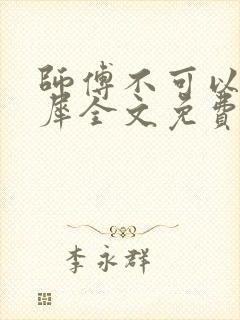 師傅不可以
犀全文免費
李永群